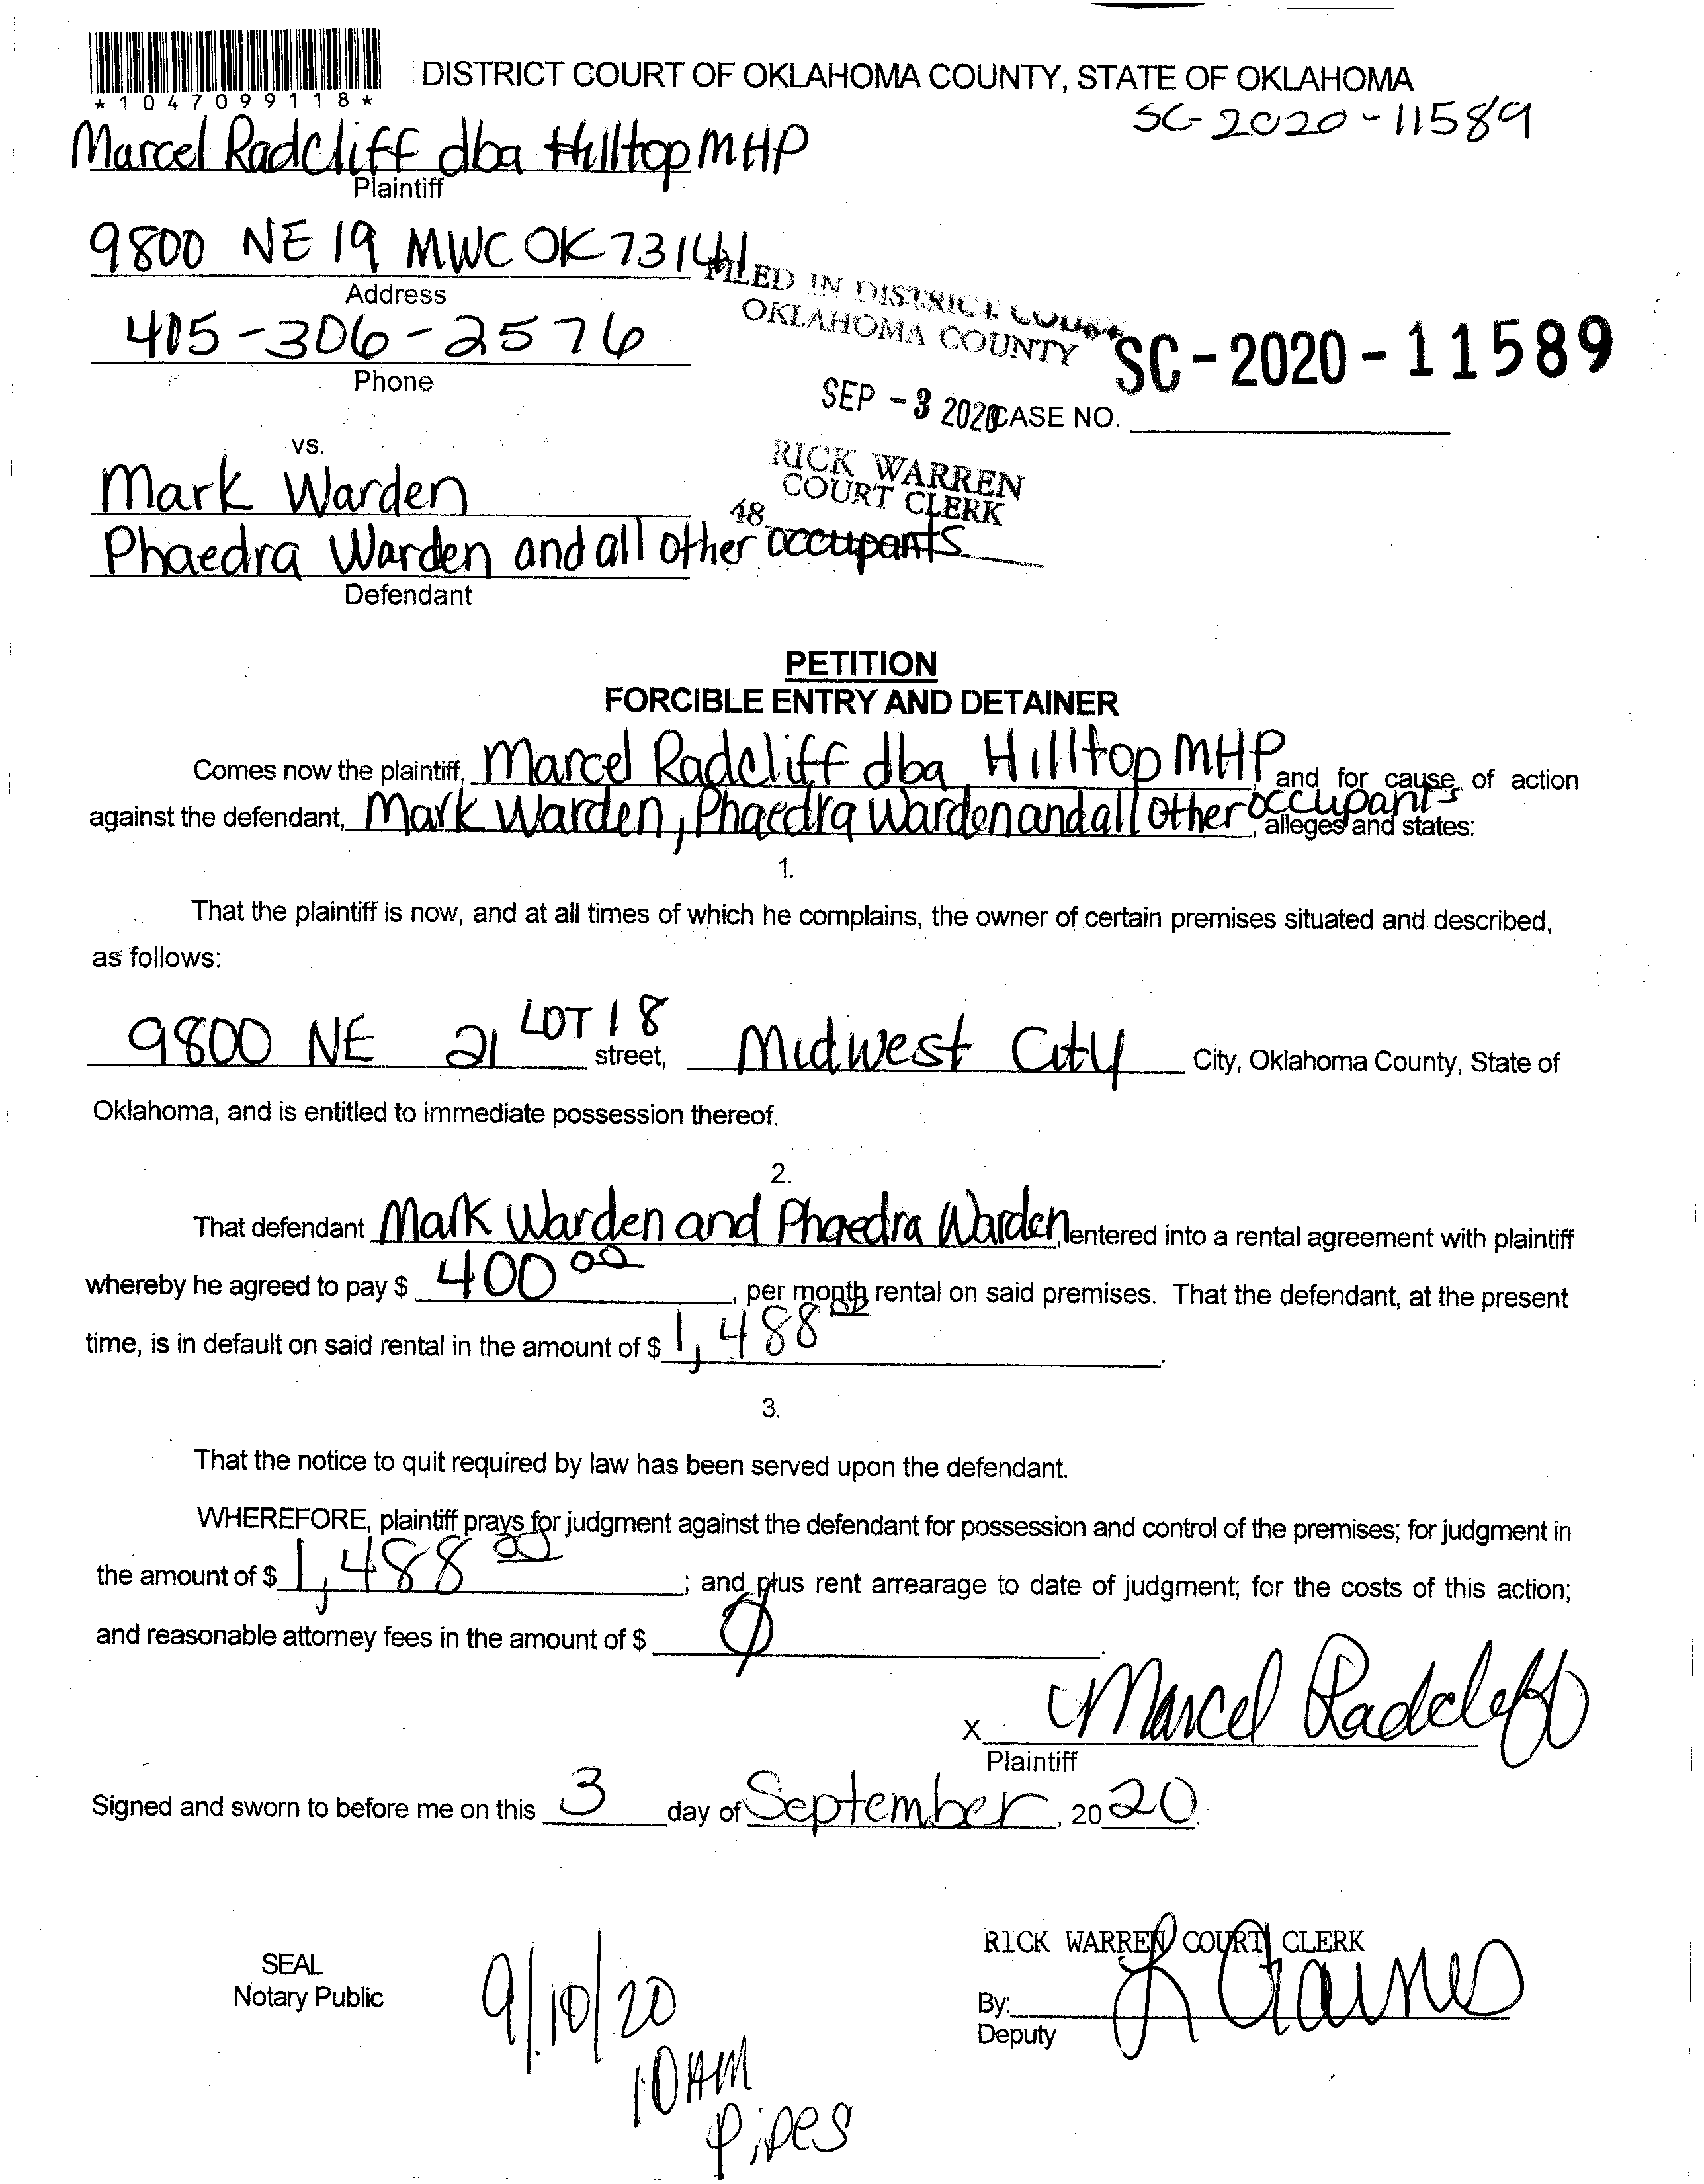 DISTRICT COURT OF OKLAHOMA COUNTY, STATE OF OKLAHOMA
*1047099118*
SC-2020-11589
Marcel Radcliff dba Hilltop MHP
Plaintiff
9800 NE 19 MWC OK 73141
FILED IN DISTRICT COURT
OKLAHOMA COUNTY
Address
405-306-2576
SC-2020-11589
Phone
SEP -3 2020
CASE NO.
vs.
RICK WARREN
COURT CLERK
Mark Warden
48
Phaedra Warden and all other occupants
Defendant
PETITION
FORCIBLE ENTRY AND DETAINER
Comes now the plaintiff, Marcel Radcliff dba Hilltop MHP and for cause of action
against the defendant, Mark Warden, Phaedra Warden and all other occupants, alleges and states:
1.
That the plaintiff is now, and at all times of which he complains, the owner of certain premises situated and described,
as follows:
9800 NE 21 LOT 18 street, Midwest City City, Oklahoma County, State of
Oklahoma, and is entitled to immediate possession thereof.
2.
That defendant Mark Warden and Phaedra Warden, entered into a rental agreement with plaintiff
whereby he agreed to pay $ 400 00, per month rental on said premises. That the defendant, at the present
time, is in default on said rental in the amount of $ 1,488 00.
3.
That the notice to quit required by law has been served upon the defendant.
WHEREFORE, plaintiff prays for judgment against the defendant for possession and control of the premises; for judgment in
the amount of $ 1,488 00; and plus rent arrearage to date of judgment; for the costs of this action;
and reasonable attorney fees in the amount of $ Ø.
X Marcel Radcliff
Plaintiff
Signed and sworn to before me on this 3 day of September, 2020.
RICK WARREN COURT CLERK
SEAL
Notary Public
By: L Gaines
Deputy
9/10/20
10 AM
Pipes